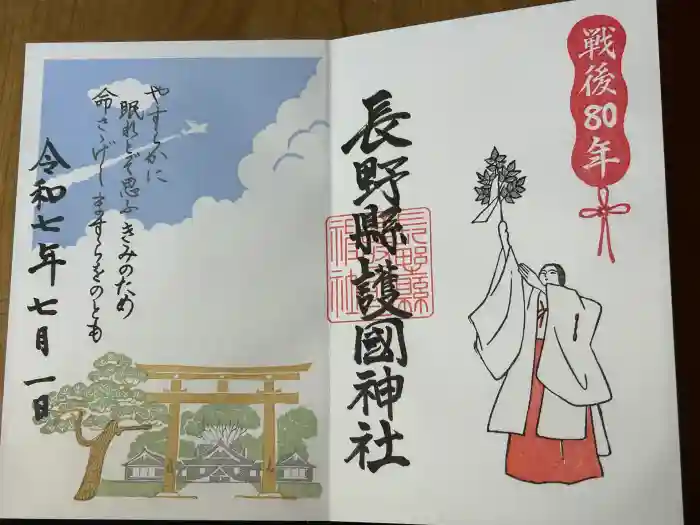 戦後80年
長野縣護國神社
長野縣護國神社
やすらかに
眠れとぞ思ふ きみのため
命さゝげし ますらをのとも
令和七年七月一日